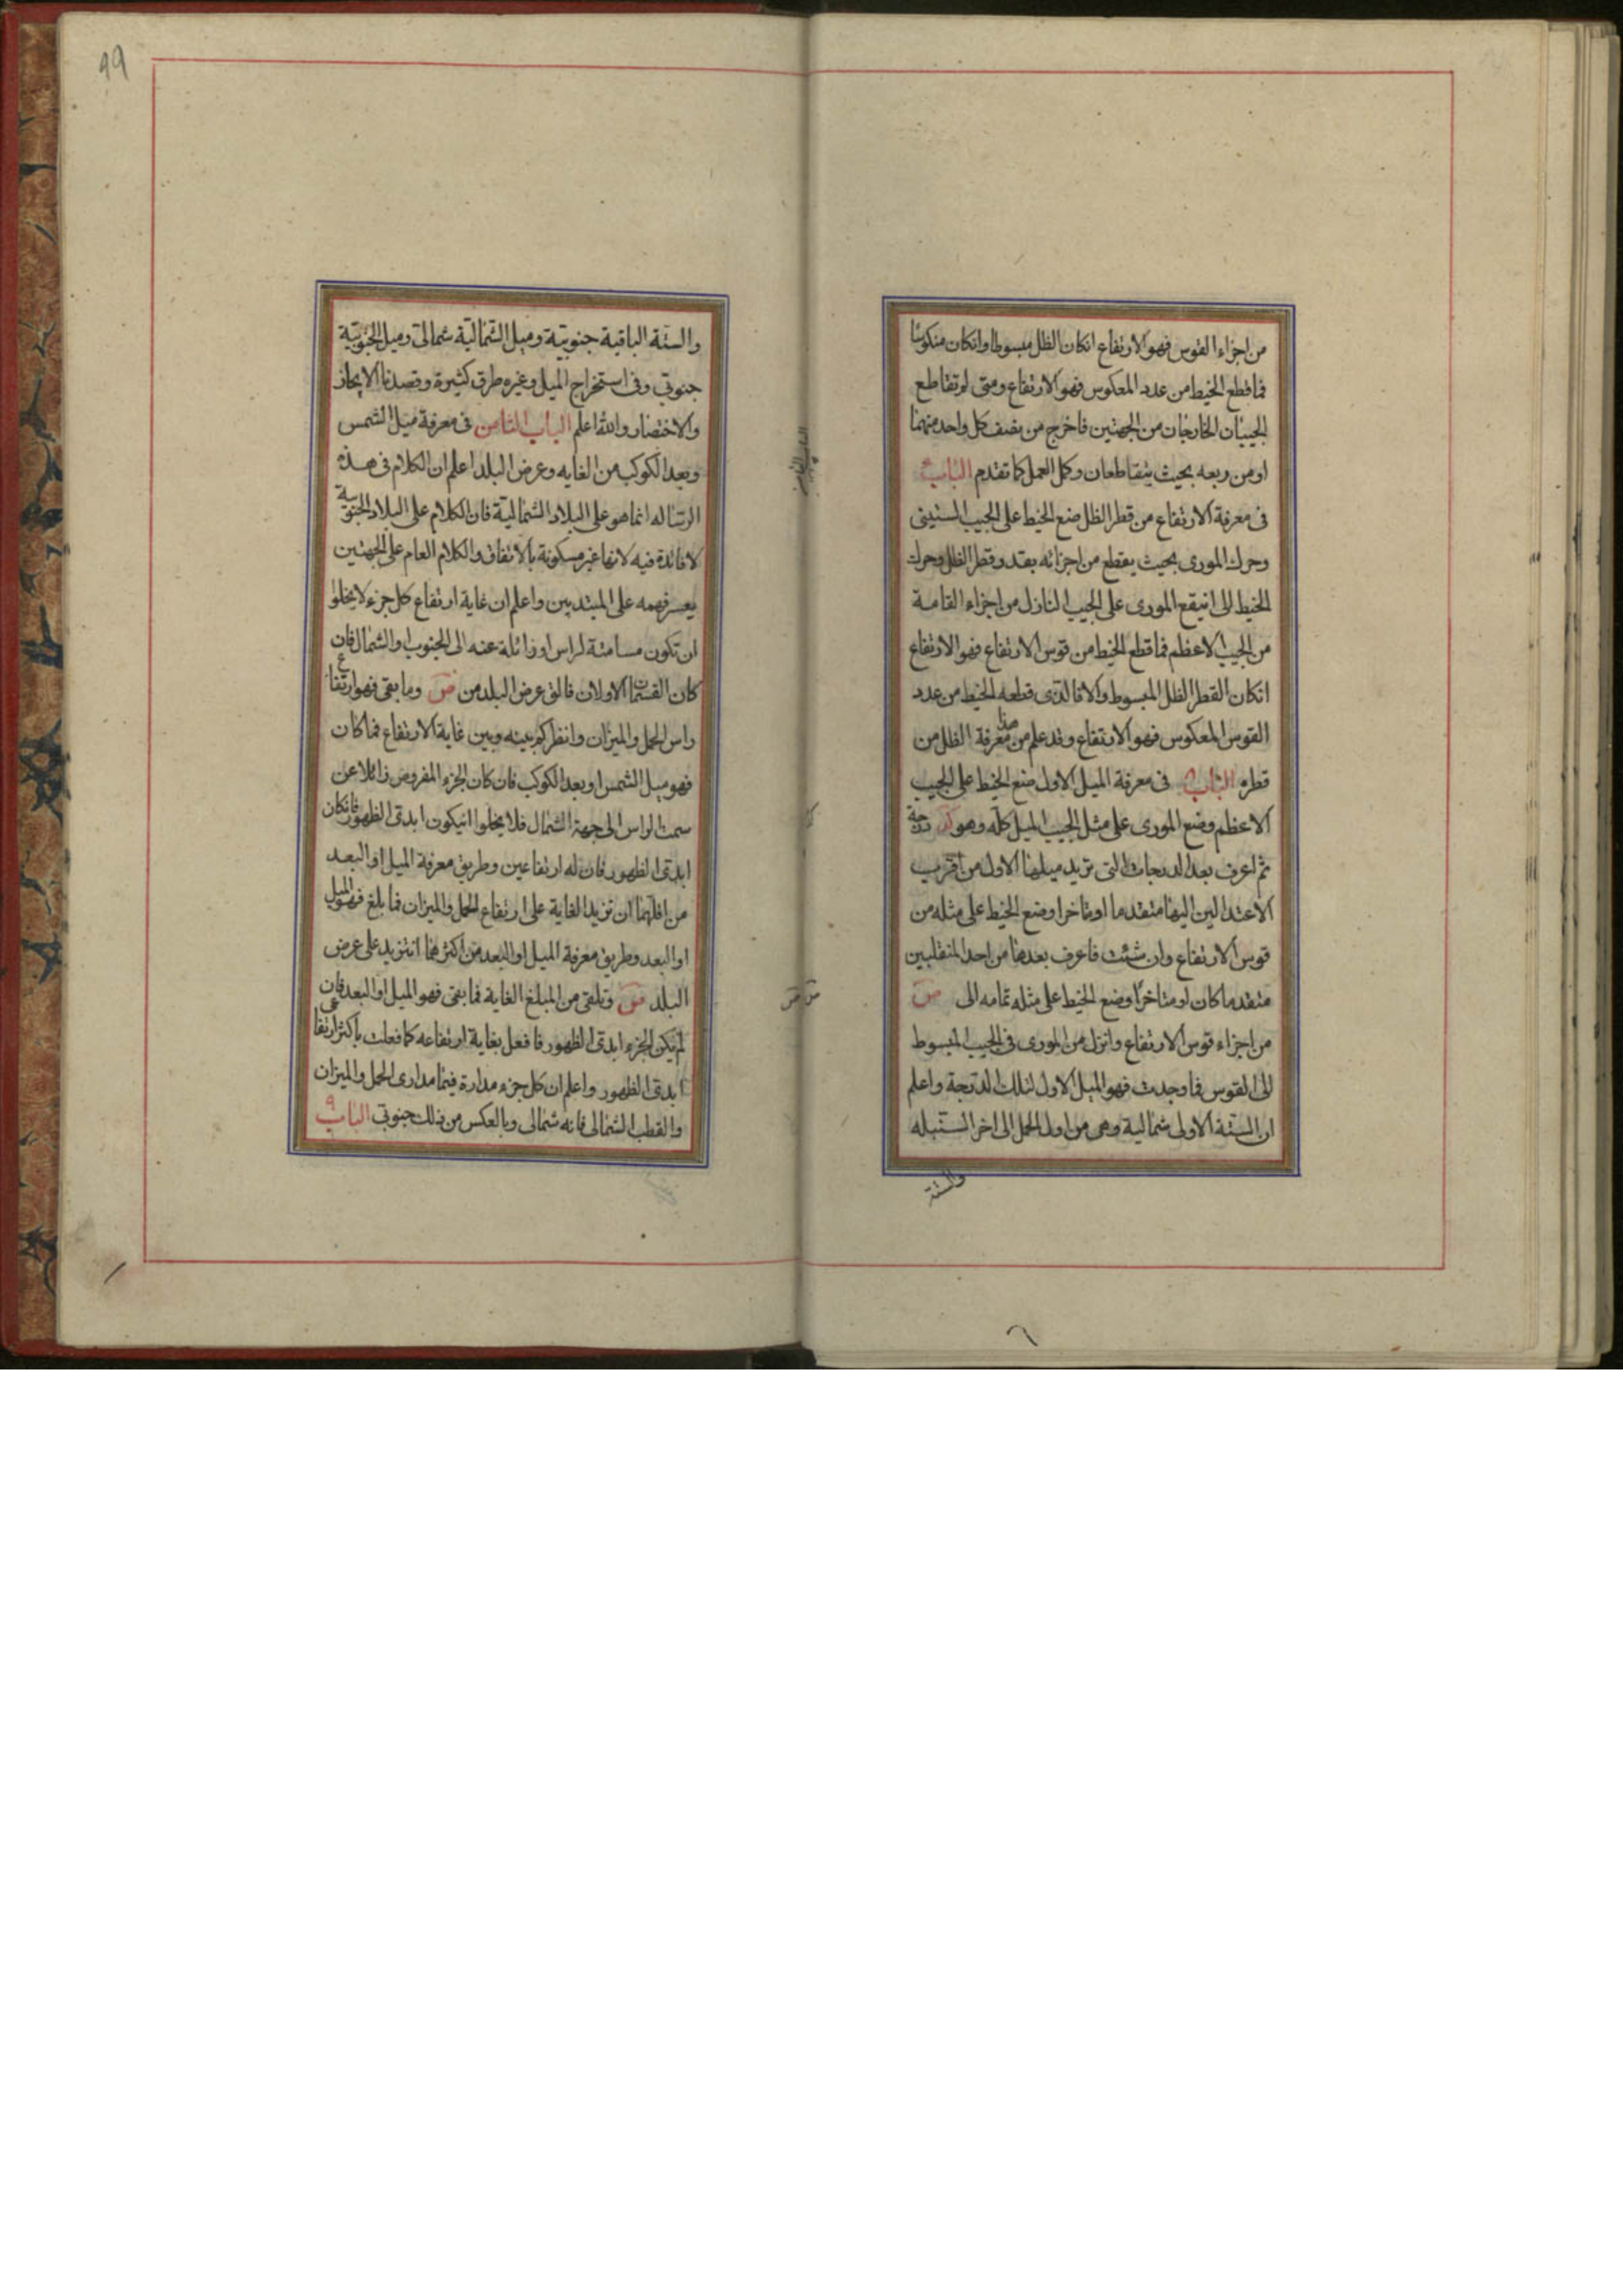 من اجزاء القوس فهو الارتفاع انكان الظل مبسوطا وانكان منكوسا
فما قطع الخيط من عدد المعكوس فهو الارتفاع ومتى لو تقاطع
الجيبان الخارجان من الجهتين فاخرج من نصف كل واحد منهما
او من ربعه بحيث يتقاطعان وكمل العمل كما تقدم الباب
فى معرفة الارتفاع من قطر الظل ضع الخيط على الجيب الستينى
وحرك المورى بحيث يقطع من اجزائه بقدر قطر الظل وحرك
الخيط الى انيقع المورى على الجيب النازل من اجزاء القامة
من الجيب الاعظم فما قطع الخيط من قوس الارتفاع فهو الارتفاع
انكان القطر الظل المبسوط والا فالذى قطعه الخيط من عدد
القوس المعكوس فهو الارتفاع وقد علم من هذا معرفة الظل من
قطره الباب فى معرفة الميل الاول ضع الخيط على الجيب
الاعظم وضع المورى على مثل الجيب الميل كله وهو كد درجة
ثم اعرف بعد الدرجات التى تريد ميلها الاول من اقرب
الاعتدالين اليها متقدما او متاخرا وضع الخيط على مثله من
قوس الارتفاع وان شئت فاعرف بعدها من احد المنقلبين
متقدما كان او متاخرا وضع الخيط على مثله تمامه الى ص
من اجزاء قوس الارتفاع وانزل من المورى فى الجيب المبسوط
الى القوس فما وجدت فهو الميل الاول لتلك الدرجة واعلم
ان الستة الاولى شمالية وهى من اول الحمل الى اخر السنبله
والستة
99
والستة الباقية جنوبية وميل الشمالية شمالى وميل الجنوبية
جنوبى وفى استخراج الميل وغيره طرق كثيرة وقصدنا الايجاز
والاختصار والله اعلم الباب الثامن فى معرفة ميل الشمس
وبعد الكوكب من الغايه وعرض البلد اعلم ان الكلام فى هذه
الرساله انما هو على البلاد الشمالية فان الكلام على البلاد الجنوبية
لا فائدة فيه لانها غير مسكونة بالاتفاق والكلام العام على الجهتين
يعسر فهمه على المبتديين واعلم ان غاية ارتفاع كل جزء لا يخلوا
ان تكون مسامتة لراس او زائلة عنه الى الجنوب او الشمال فان
كان القسمان الاولان فالق عرض البلد من ص وما بقى فهو ارتفاع
راس الحمل والميزان وانظر كم بينه وبين غاية الارتفاع فما كان
فهو ميل الشمس او بعد الكوكب فان كان الجزء المفروض زائلا عن
سمت الراس الى جهة الشمال فلا يخلوا انيكون ابدى الظهور فانكان
ابدى الظهور فان له ارتفاعين وطريق معرفة الميل او البعد
من اقلهما ان تزيد الغاية على ارتفاع الحمل والميزان فما بلغ فهو الميل
او البعد وطريق معرفة الميل او البعد من اكثرهما انتزيد على عرض
البلد ص وتلقى من المبلغ الغاية فما بقى فهو الميل او البعد فان
لم يكن الجزء ابدى الظهور فافعل بغاية ارتفاعه كما فعلت باكثر ارتفاعى
ابدى الظهور واعلم ان كل جزء مدارة فيما مدارى الحمل والميزان
والقطب الشمالى فانه شمالى وبالعكس من ذلك جنوبى الباب ٩